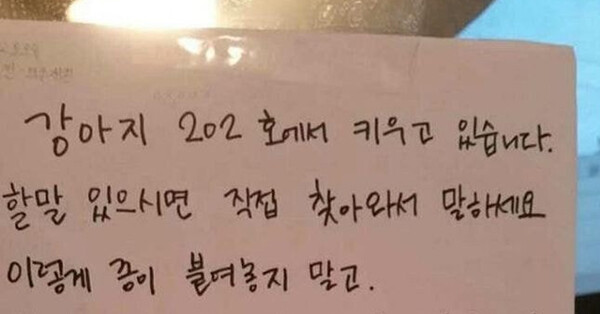 강아지 202 호에서 키우고 있습니다.
할말 있으시면 직접 찾아와서 말하세요
이렇게 종이 붙여놓지 말고.